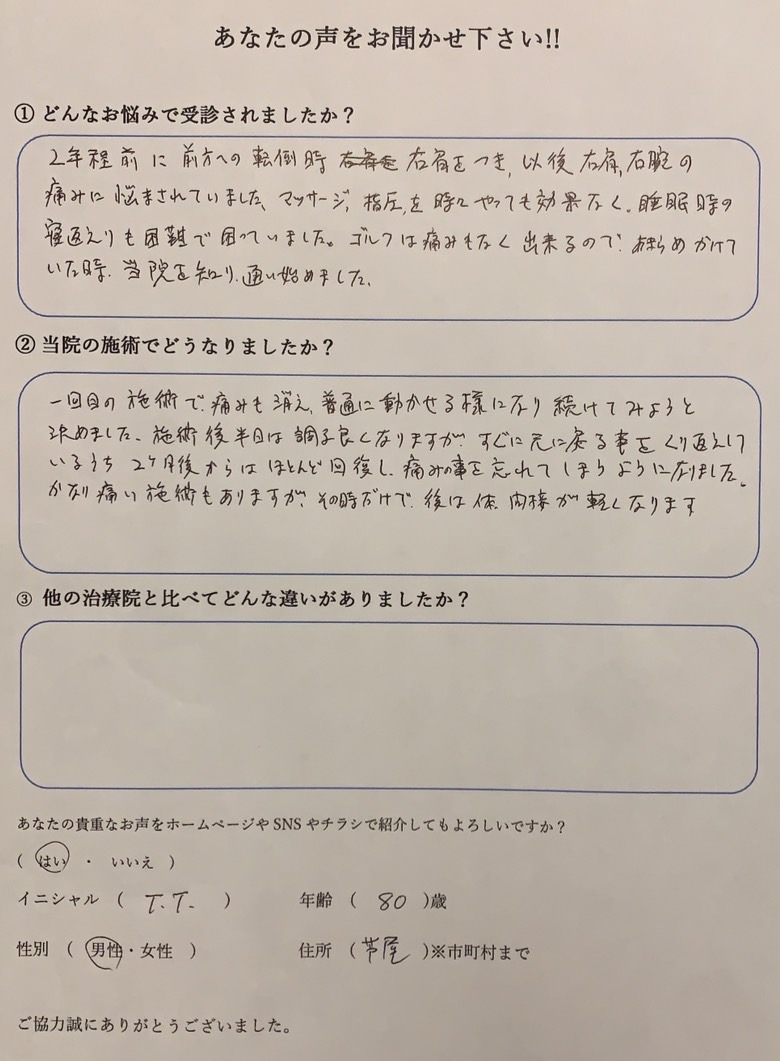 あなたの声をお聞かせ下さい!!
① どんなお悩みで受診されましたか？
2年程前に前方への転倒時 右肩を 右肩をつき、以後右肩、右腕の
痛みに悩まされていました、マッサージ、指圧、を時々やっても効果なく、睡眠時の
寝返えりも困難で困っていました。ゴルフは痛みもなく出来るので、あきらめかけて
いた時、当院を知り、通い始めました、
② 当院の施術でどうなりましたか？
一回目の施術で、痛みも消え、普通に動かせる様になり続けてみようと
決めました、施術後半日は調子良くなりますが、すぐに元に戻る事をくり返えして
いるうち2ケ月後からはほとんど回復し、痛みの事を忘れてしまうようになりました。
かなり痛い施術もありますが、その時だけで、後は体、内様が軽くなります
③ 他の治療院と比べてどんな違いがありましたか？
あなたの貴重なお声をホームページやSNSやチラシで紹介してもよろしいですか？
（ はい ・ いいえ ）
イニシャル （ T.T. ） 年齢 （ 80 ）歳
性別 （ 男性・女性 ） 住所 （芦屋 ）※市町村まで
ご協力誠にありがとうございました。